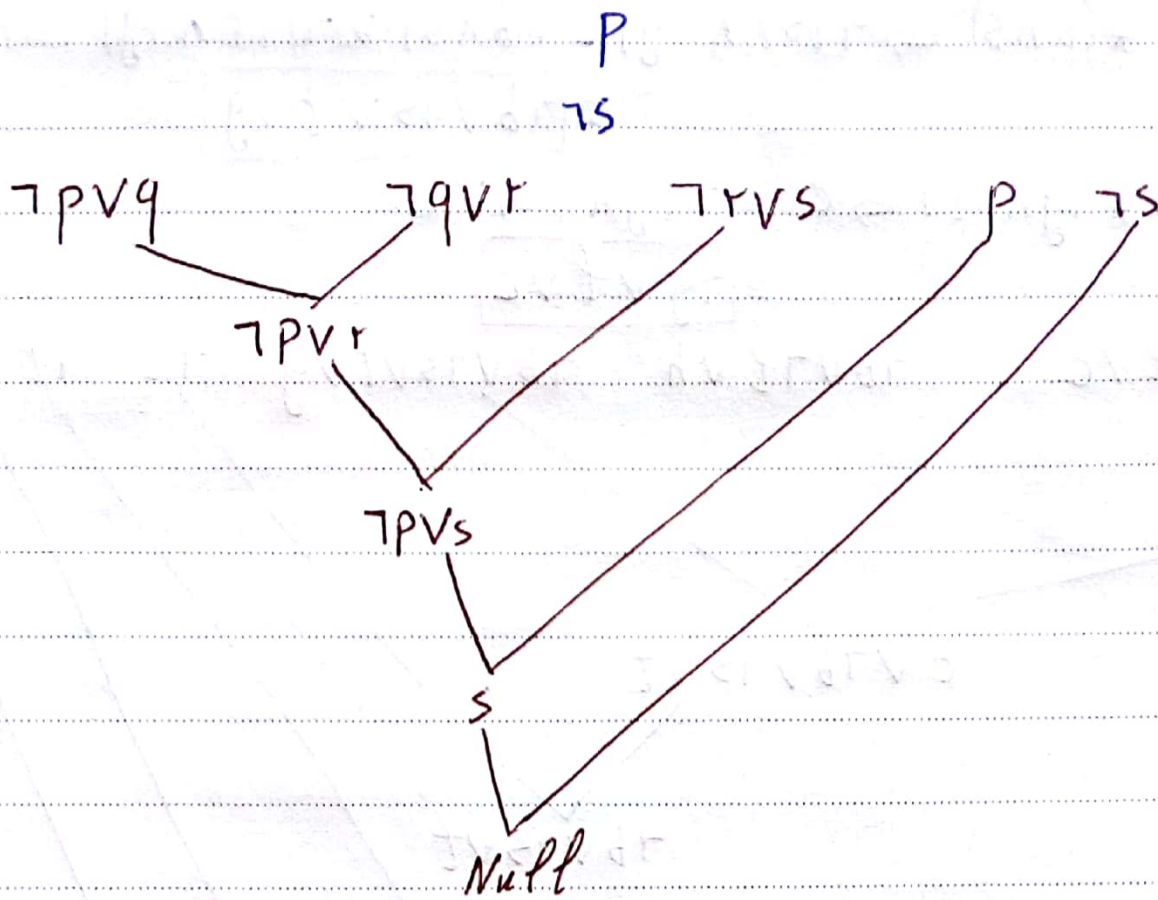 P
¬s
¬p∨q ¬q∨r ¬r∨s p ¬s
¬p∨r
¬p∨s
s
Null